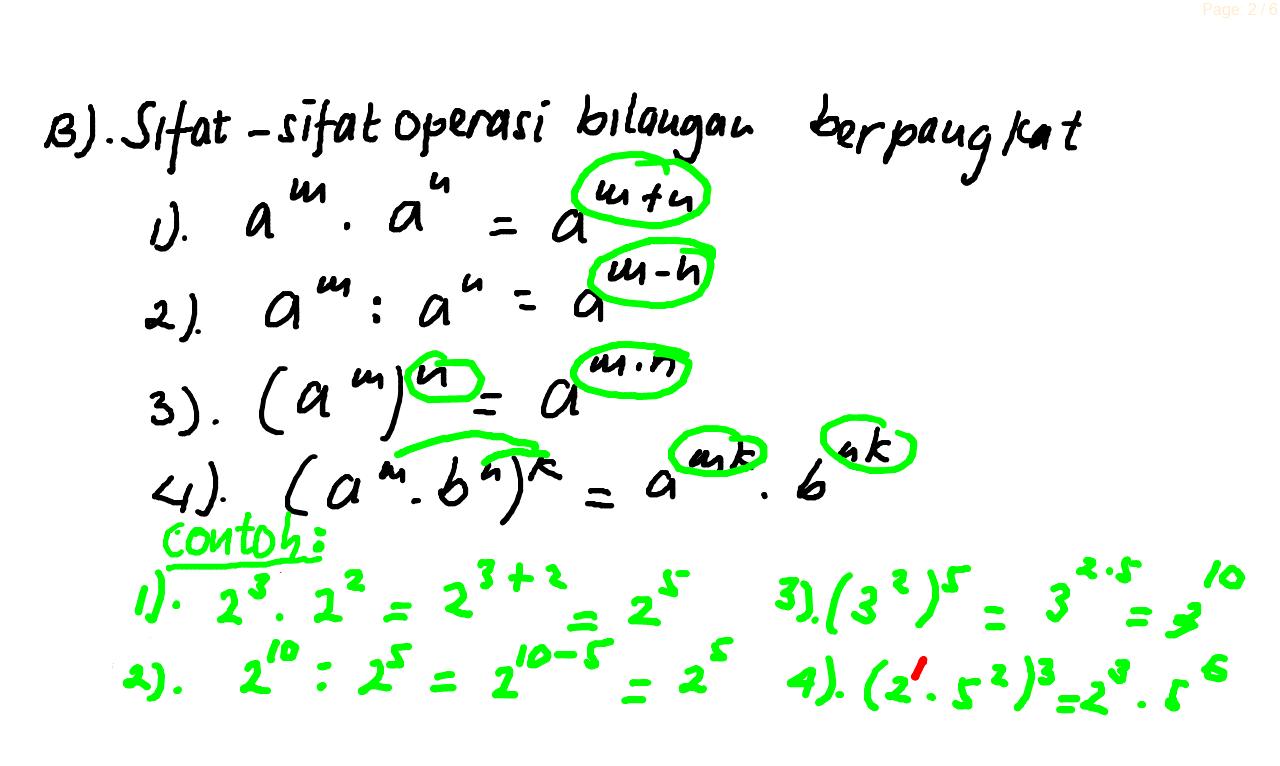 Page 2 / 6
B). Sifat-sifat operasi bilangan berpangkat
1). a^m . a^n = a^(m+n)
2). a^m : a^n = a^(m-n)
3). (a^m)^n = a^(m.n)
4). (a^m . b^n)^k = a^(mk) . b^(nk)
Contoh:
1). 2^3 . 2^2 = 2^(3+2) = 2^5
2). 2^10 : 2^5 = 2^(10-5) = 2^5
3). (3^2)^5 = 3^(2.5) = 3^10
4). (2^1 . 5^2)^3 = 2^3 . 5^6